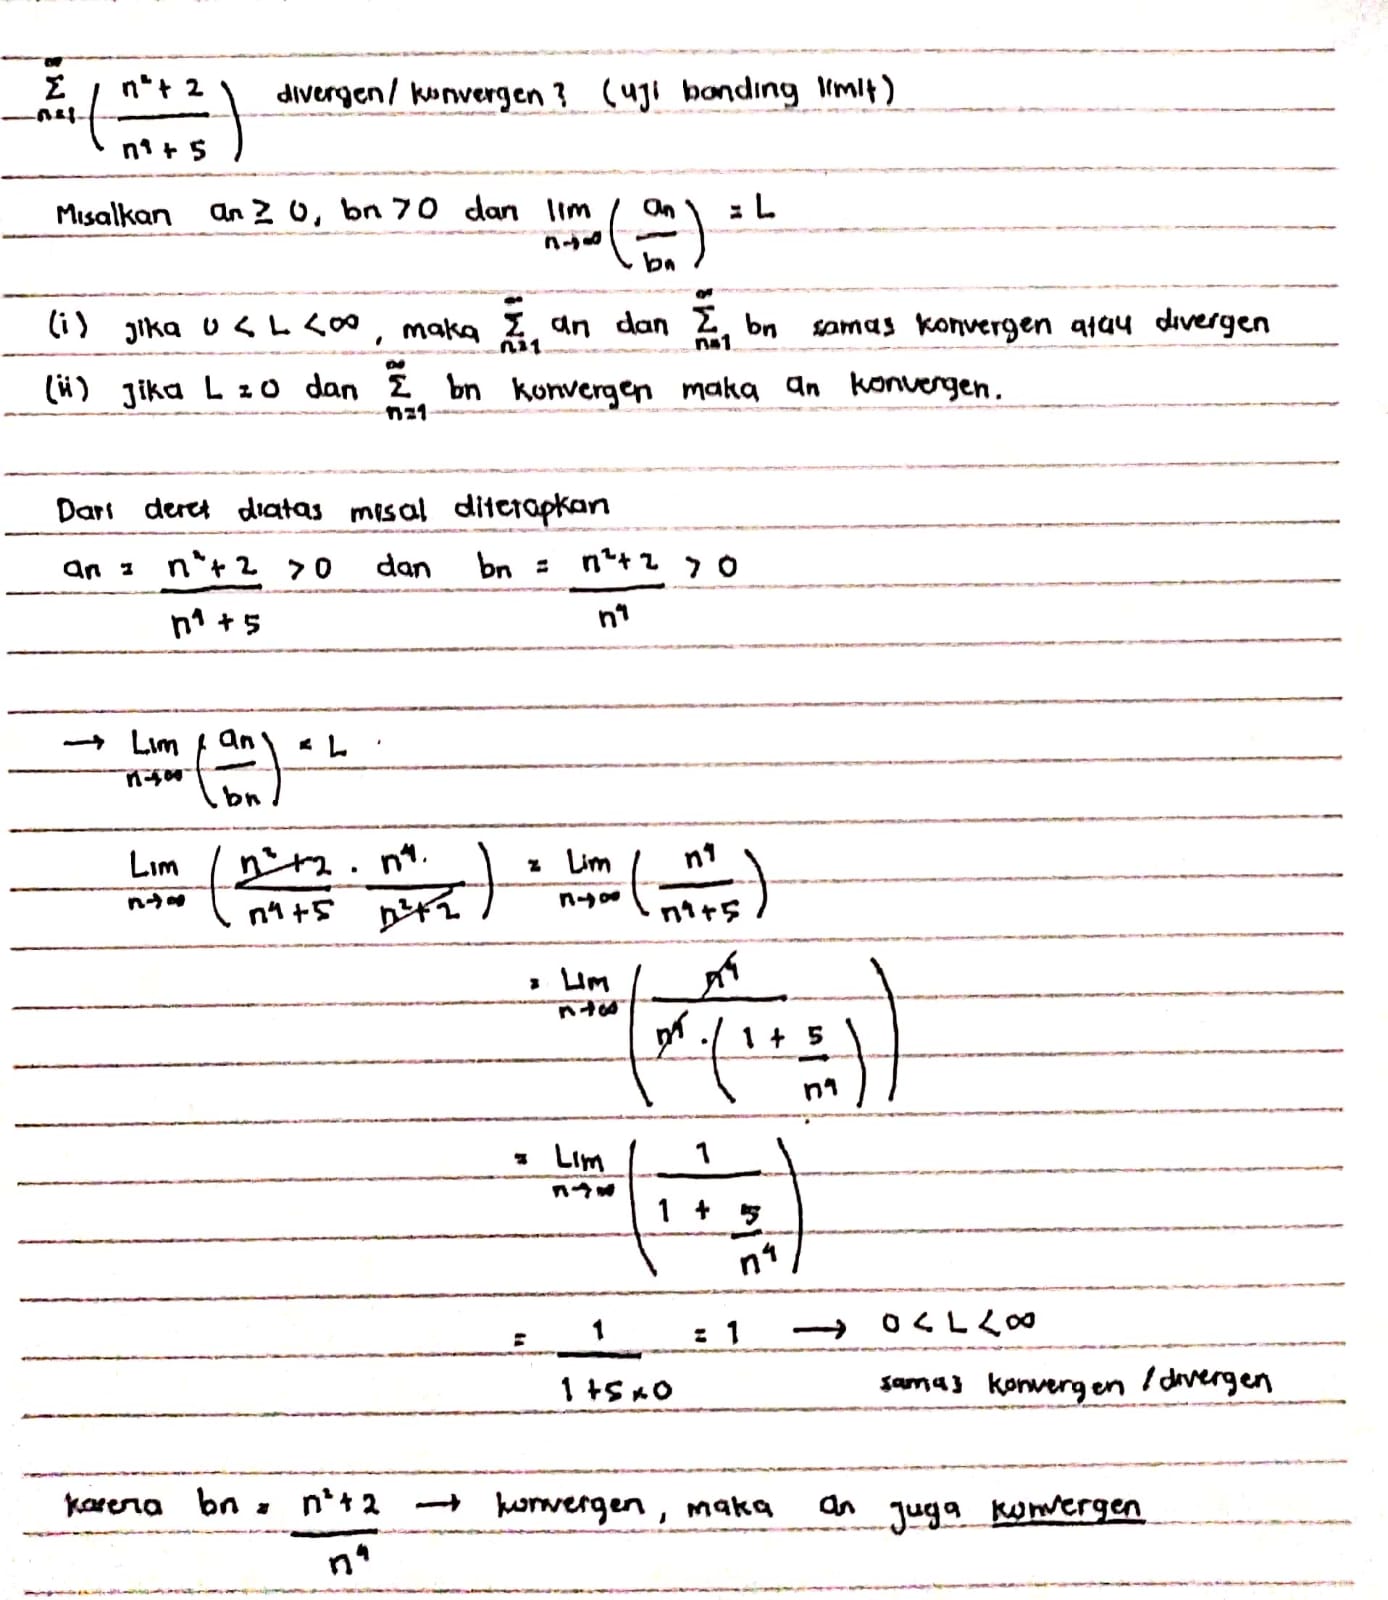 ∞
Σ (n² + 2 / n⁴ + 5) divergen / konvergen ? (uji banding limit)
n=1
Misalkan an ≥ 0, bn > 0 dan lim n→∞ (an / bn) = L
(i) jika 0 < L < ∞, maka Σ∞n=1 an dan Σ∞n=1 bn samas konvergen atau divergen
(ii) jika L = 0 dan Σ∞n=1 bn konvergen maka an konvergen.
Dari deret diatas misal diterapkan
an = n² + 2 / n⁴ + 5 > 0 dan bn = n² + 2 / n⁴ > 0
→ Lim n→∞ (an / bn) = L
Lim n→∞ (n² + 2 / n⁴ + 5 . n⁴ / n² + 2) = Lim n→∞ (n⁴ / n⁴ + 5)
= Lim n→∞ (n⁴ / n⁴ . (1 + 5 / n⁴))
= Lim n→∞ (1 / 1 + 5 / n⁴)
= 1 / 1 + 5 × 0 = 1 → 0 < L < ∞
samas konvergen / divergen
karena bn = n² + 2 / n⁴ → konvergen, maka an juga konvergen